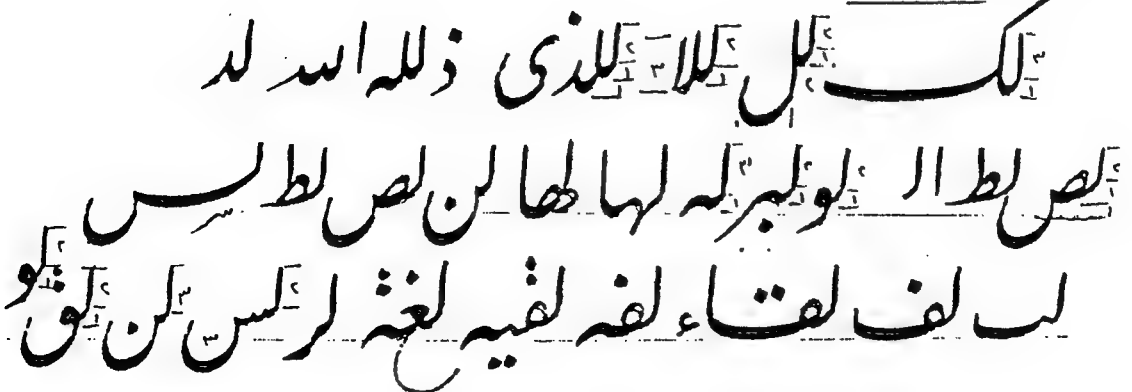 لک لل للا للذی ذلله الله لد
لص لط ال لو لبر له لها لها لن لص لط لس
لب لف لقاء لفه لفیه لغة لر لس لن لق لو